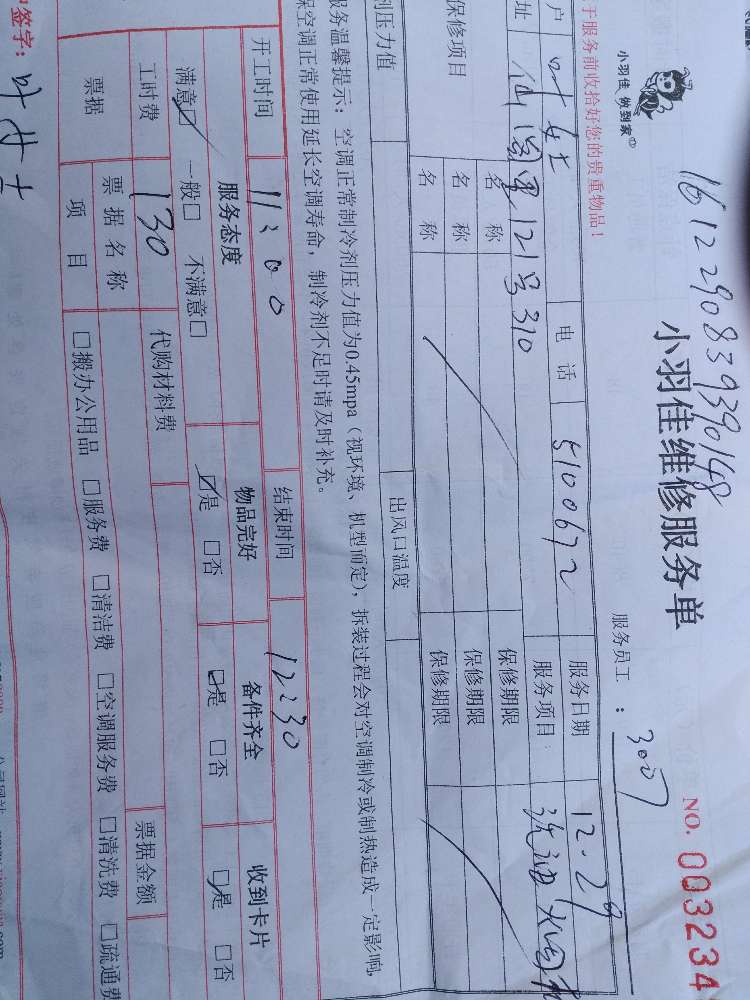 1612290839390148
小羽佳 做到家
小羽佳维修服务单
NO. 003234
服务员工：3007
于服务前收拾好您的贵重物品！
户 叶女士 电话 5100672 服务日期 12.29
址 仙阁里121号310 服务项目 洗油烟机
保修项目 名称 保修期限
名称 保修期限
名称 保修期限
剂压力值 出风口温度
服务温馨提示：空调正常制冷剂压力值为0.45mpa（视环境、机型而定），拆装过程会对空调制冷或制热造成一定影响，
保空调正常使用延长空调寿命，制冷剂不足时请及时补充。
开工时间 11:00 结束时间 12:30
服务态度 物品完好 备件齐全 收到卡片
满意□ 一般□ 不满意□ □是 □否 □是 □否 □是 □否
工时费 130 代购材料费
票据 票据名称 票据金额
项目 □搬办公用品 □服务费 □清洁费 □空调服务费 □清洗费 □疏通费
签字：叶女士